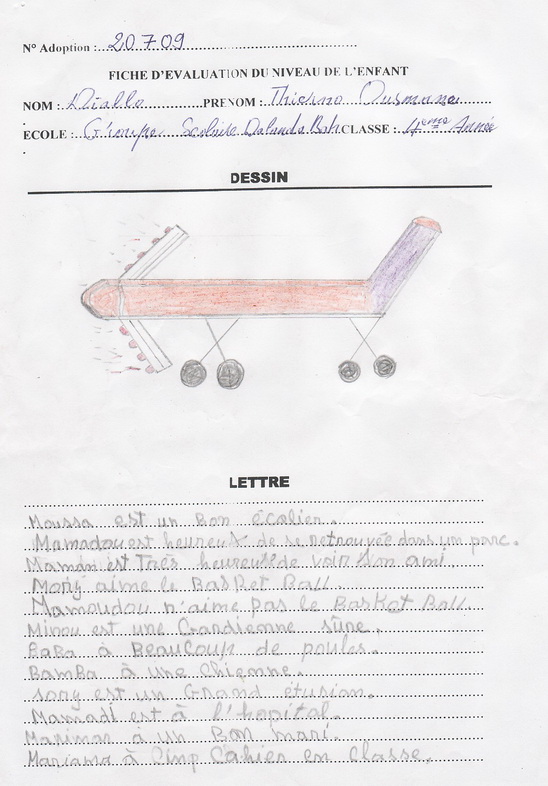 N° Adoption : 20709
FICHE D'EVALUATION DU NIVEAU DE L'ENFANT
NOM : Diallo PRENOM : Thierno Ousmane
ECOLE : Groupe Scolaire Dalanda Bah CLASSE : 4eme Année
DESSIN
LETTRE
Moussa est un Bon écolier.
Mamadou est heureux de se retrouvée dans un parc.
Maman est Très heureuse de voir Son ami.
Mory aime le BasKet Ball.
Mamoudou n'aime pas le BasKet Ball.
Minou est une Gardienne sûre.
BaBa à BeauCoup de poules.
BamBa à une Chienne.
sony est un Grand étudian.
Mamadi est à l'hopital.
à un Bon mari.
Mariama à Cinp Cahier en Classe.